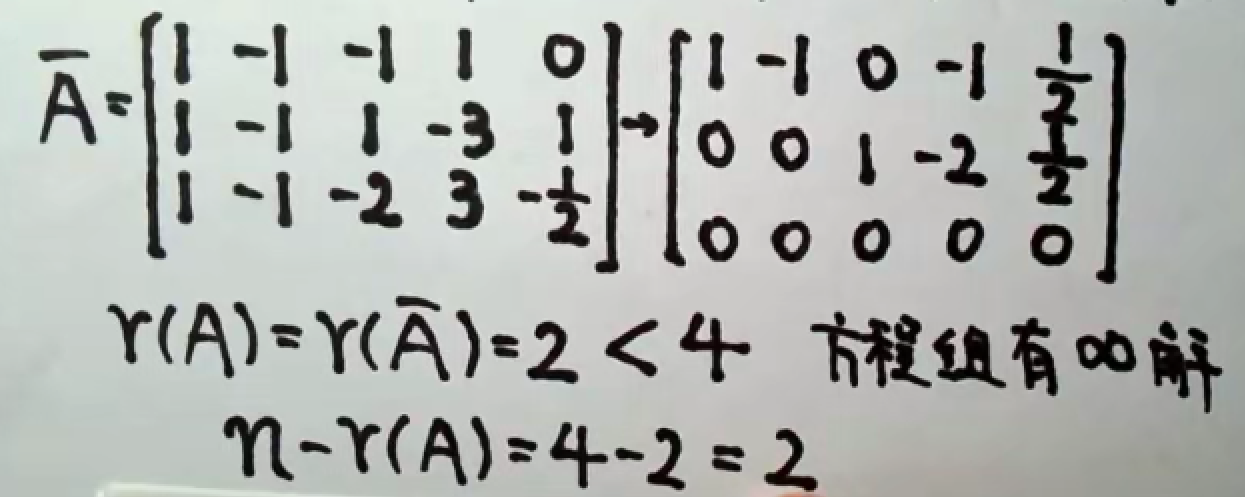 A̅ = [1 -1 -1 1 0; 1 -1 1 -3 1; 1 -1 -2 3 -1/2] → [1 -1 0 -1 1/2; 0 0 1 -2 1/2; 0 0 0 0 0]
r(A)=r(A̅)=2<4 方程组有∞解
n-r(A)=4-2=2